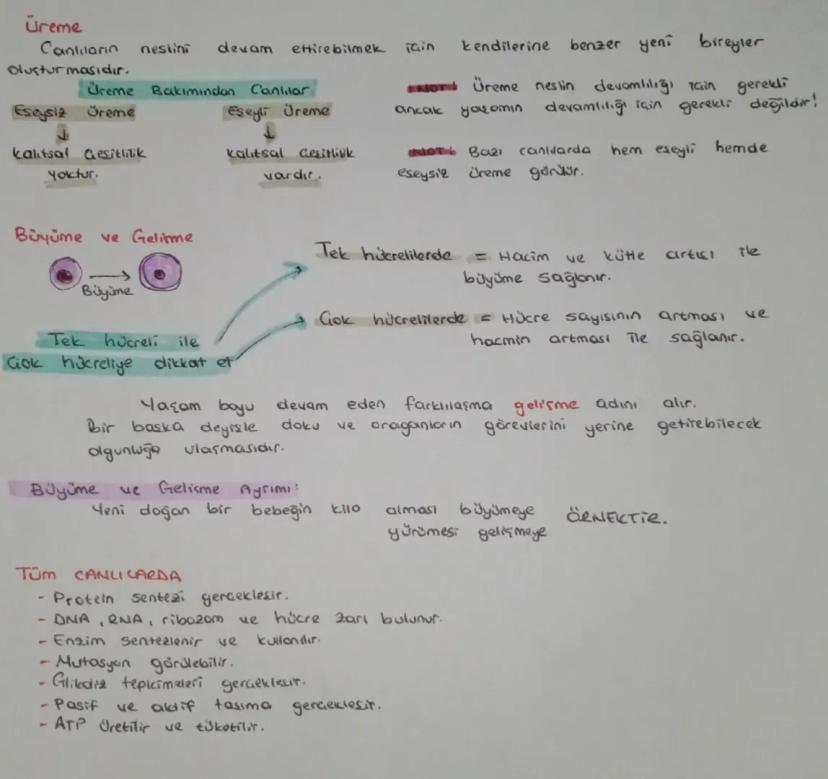 Üreme
Canlıların neslini devam ettirebilmek için kendilerine benzer yeni bireyler
oluşturmasıdır.
Üreme Bakımından Canlılar
Eşeysiz üreme
Eşeyli üreme
Kalıtsal çeşitlilik
yoktur.
Kalıtsal çeşitlilik
vardır.
NOT: Üreme neslin devamlılığı için gerekli
ancak yaşamın devamlılığı için gerekli değildir!
NOT: Bazı canlılarda hem eşeyli hemde
eşeysiz üreme görülür.
Büyüme ve Gelişme
Büyüme
Tek hücreli ile
Çok hücreliye dikkat et
Tek hücrelilerde = Hacim ve kütle artışı ile
büyüme sağlanır.
Çok hücrelilerde = Hücre sayısının artması ve
hacmin artması ile sağlanır.
Yaşam boyu devam eden farklılaşma gelişme adını alır.
Bir başka deyişle doku ve oraganların görevlerini yerine getirebilecek
olgunluğa ulaşmasıdır.
Büyüme ve Gelişme Ayrımı:
Yeni doğan bir bebeğin kilo alması büyümeye
yürümesi gelişmeye ÖRNEKTİR.
Tüm CANLILARDA
- Protein sentezi gerçekleşir.
- DNA, RNA, ribozom ve hücre zarı bulunur.
- Enzim sentezlenir ve kullanılır.
- Mutasyon görülebilir.
- Glikoliz tepkimeleri gerçekleşir.
- Pasif ve aktif taşıma gerçekleşir.
- ATP üretilir ve tüketilir.